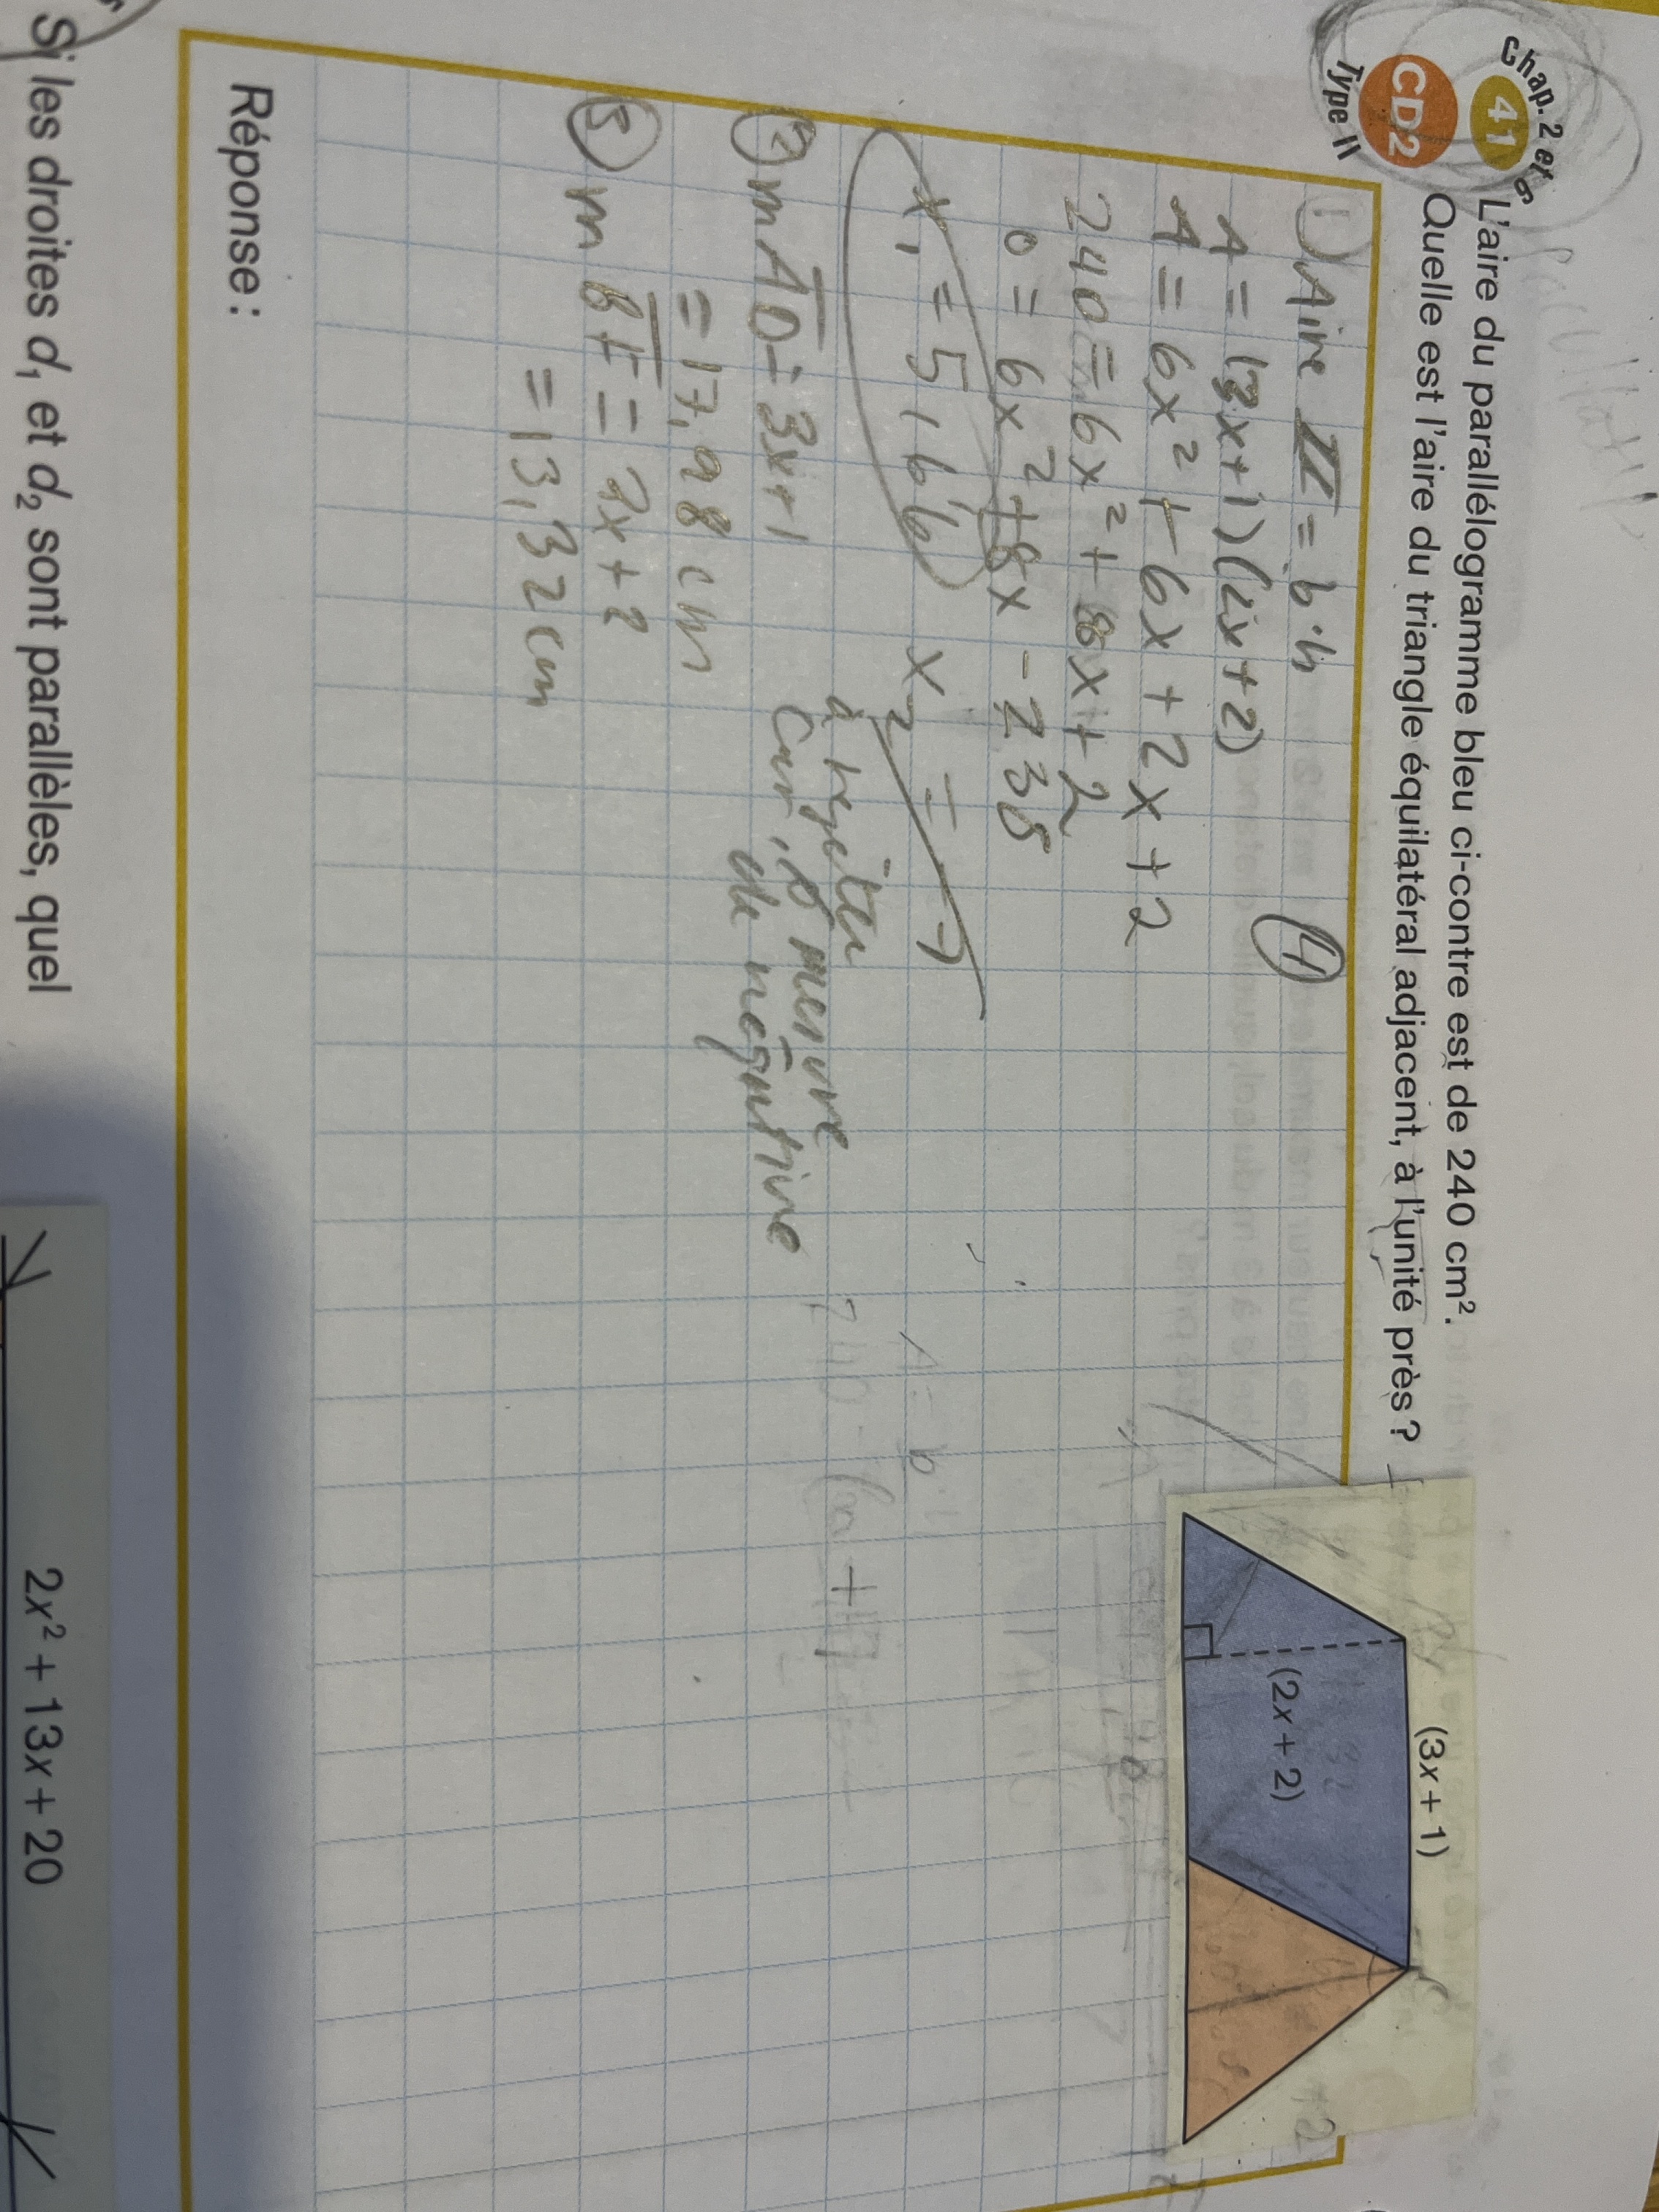 Chap. 2 et 6
41
CD2
Type II
L'aire du parallélogramme bleu ci-contre est de 240 cm².
Quelle est l'aire du triangle équilatéral adjacent, à l'unité près?
(3x + 1)
(2x + 2)
① Aire = b·h
④
A = (3x+1)(2x+2)
A = 6x² + 6x + 2x + 2
240 = 6x² + 8x + 2
0 = 6x² + 8x - 238
x₁ = 5,66
x₂ = -7
à rejeter
Car, mesure
négative
② m AD = 3x+1
= 17,98 cm
③ m = 2x+2
= 13,32 cm
A = b
Réponse :
Si les droites d₁ et d₂ sont parallèles, quel
2x² + 13x + 20